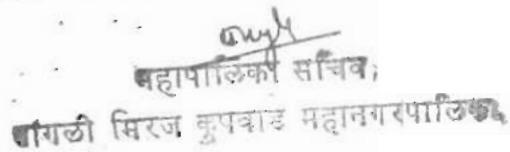 महापालिका सचिव;
सांगली मिरज कुपवाड महानगरपालिका